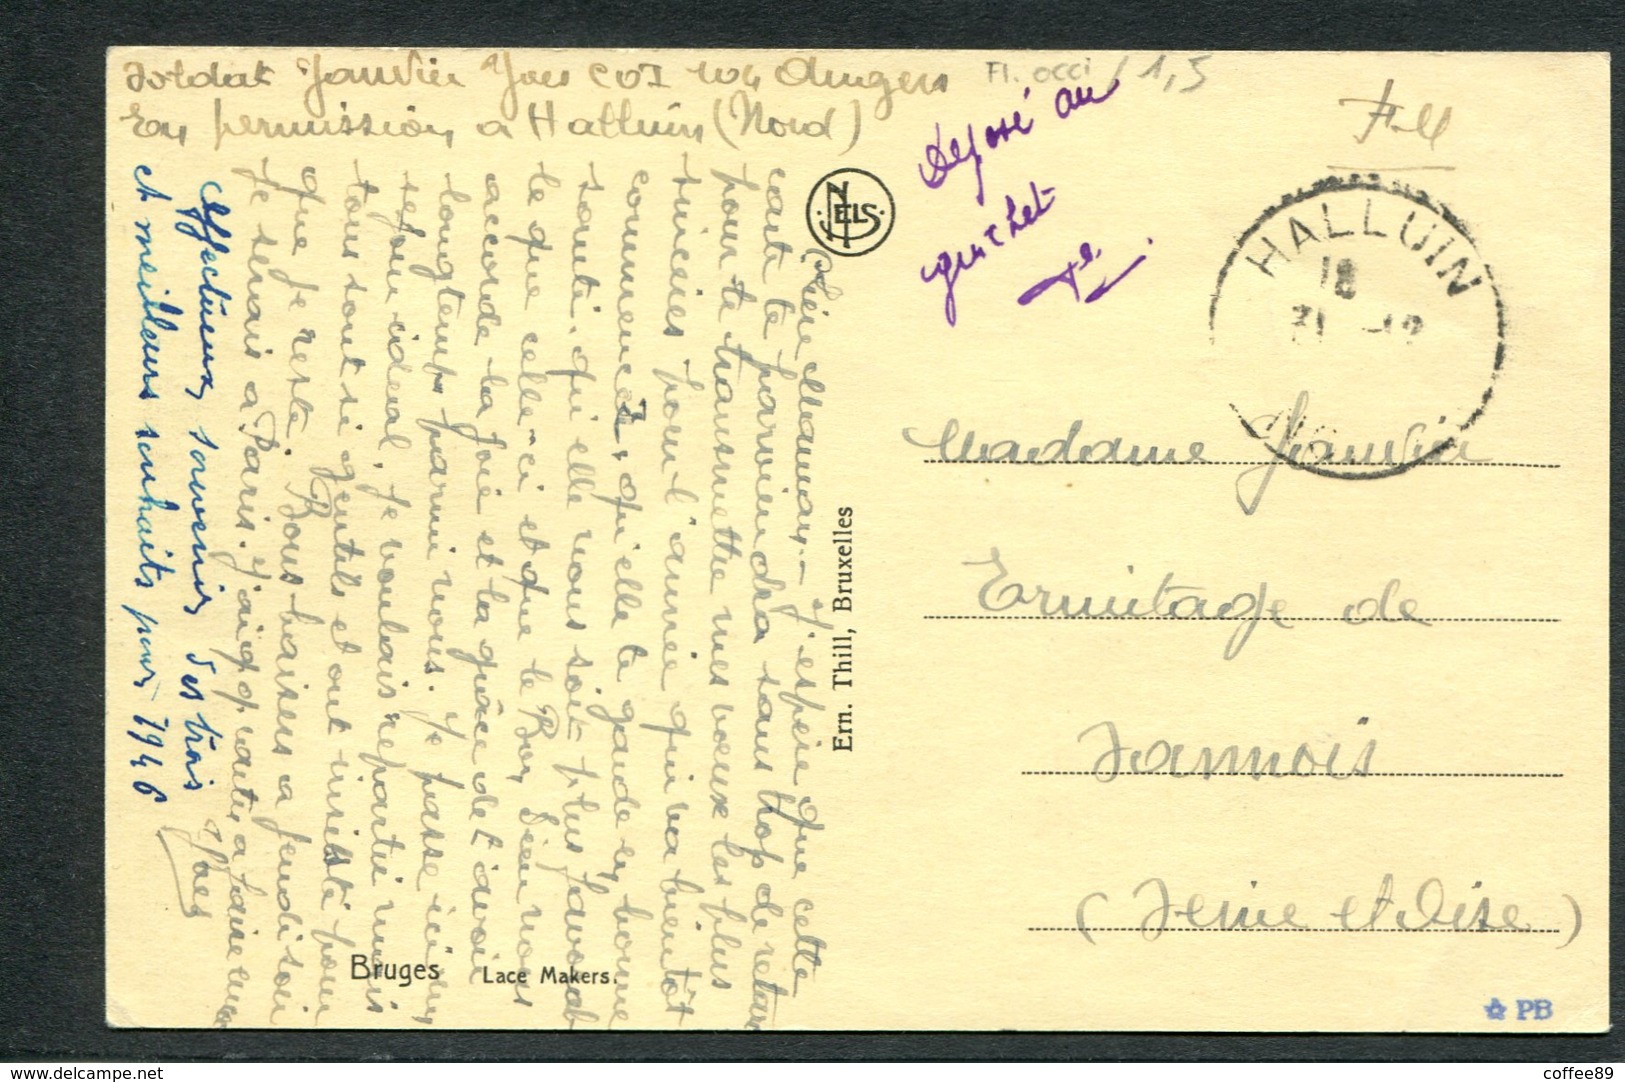 Soldat Janvier Yves COI 104 Angers
En permission à Halluin (Nord)
Fl. occi / 1,5
F.M
déposé au
guichet
HALLUIN
18
31 -12
NELS
Chère Maman - J'espère que cette
carte te parviendra sans trop de retard
pour te transmettre mes voeux les plus
sincères pour l'année qui va bientôt
commencer, qu'elle te garde en bonne
santé, qu'elle nous soit plus favorab
le que celle-ci et que le Bon Dieu nous
accorde la joie et la grâce de t'avoir
longtemps parmi nous. Je passe ici un
séjour idéal, je voulais repartir mais
tous sont si gentils et ont insisté pour
que je reste. Bons baisers à jeudi soir
Je serais à Paris. J'ai
Yves
Affectueux souvenir des trois
et meilleurs souhaits pour 1946
Ern. Thill, Bruxelles
Madame Janvier
Ermitage de
Sannois
(Seine et Oise)
Bruges Lace Makers.
PB
www.delcampe.net
coffee89